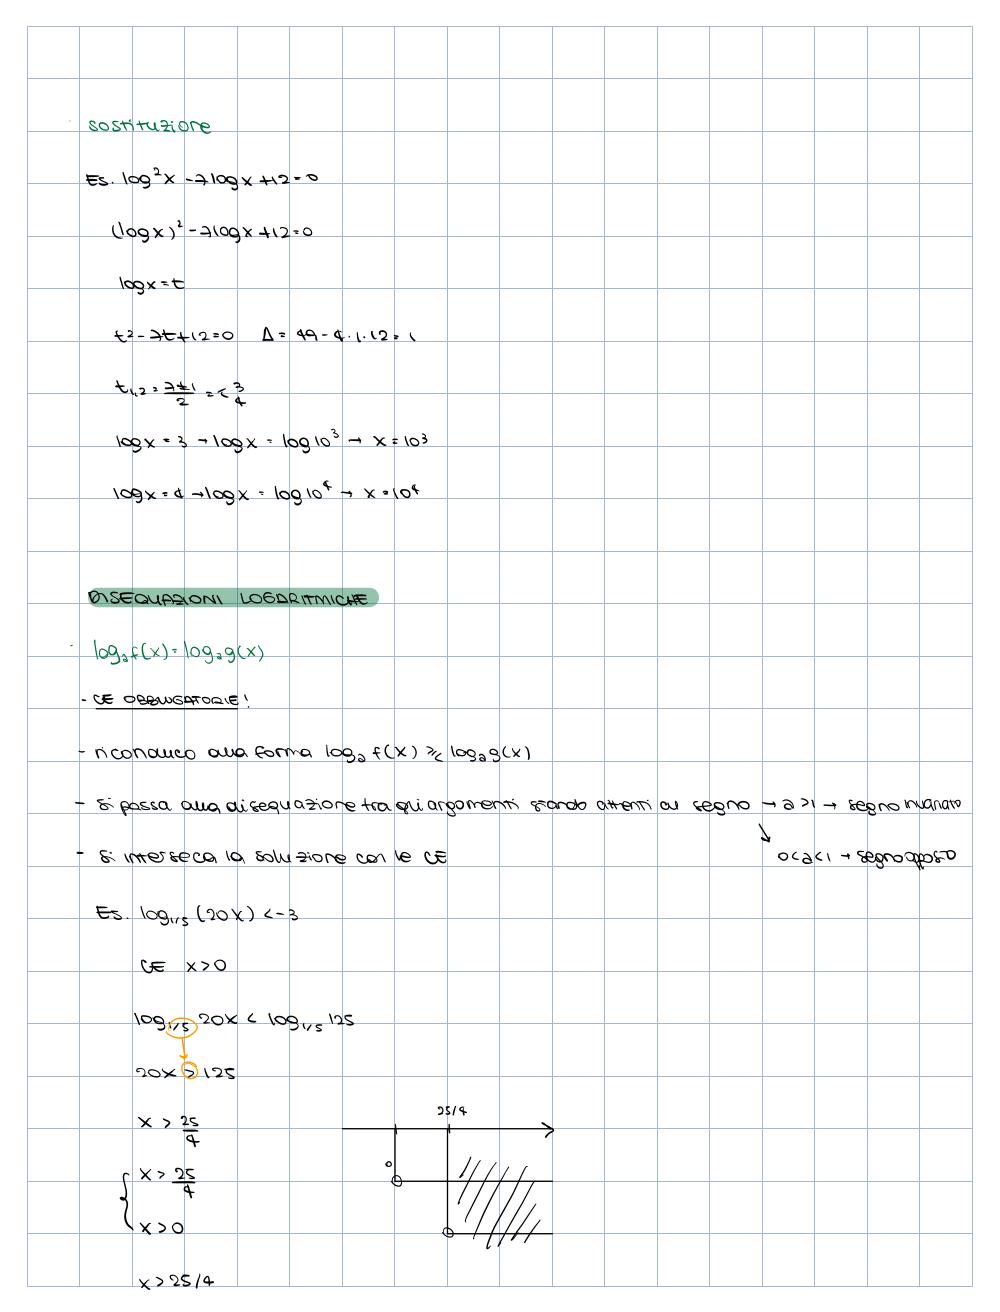 sostituzione
Es. log²x -7logx +12=0
(logx)² -7logx +12=0
logx=t
t²-7t+12=0 Δ= 49-4·1·12=1
t₁,₂ = 7±1/2 =< 3 4
logx = 3 → logx = log10³ → x=10³
logx=4 → logx = log10⁴ → x=10⁴
DISEQUAZIONI LOGARITMICHE
logₐf(x)=logₐg(x)
- CE OBBLIGATORIE!
- riconduco alla forma logₐ f(x) ≷ logₐg(x)
- si passa alla disequazione tra gli argomenti stando attenti al segno → a>1 → segno invariato
↘ 0<a<1 → segno opposto
- si interseca la soluzione con le CE
Es. log₁/₅ (20x) <-3
CE x>0
log₁/₅ 20x < log₁/₅ 125
20x > 125
x > 25/4
25/4
{ x > 25/4
0
x>0
x>25/4